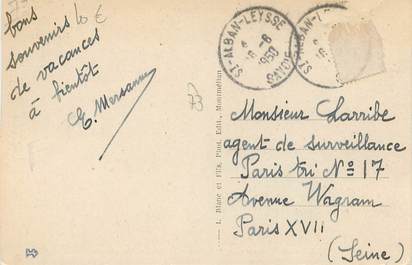 bons
souvenirs
de vacances
à bientôt
10 €
ST-ALBAN-LEYSSE
-8
1950
SAVOIE
ST-ALBAN-L
L. Blanc et Fils, Phot. Edit., Montmélian
Monsieur Larribe
agent de surveillance
Paris tri No 17
Avenue Wagram
Paris XVII
(Seine)